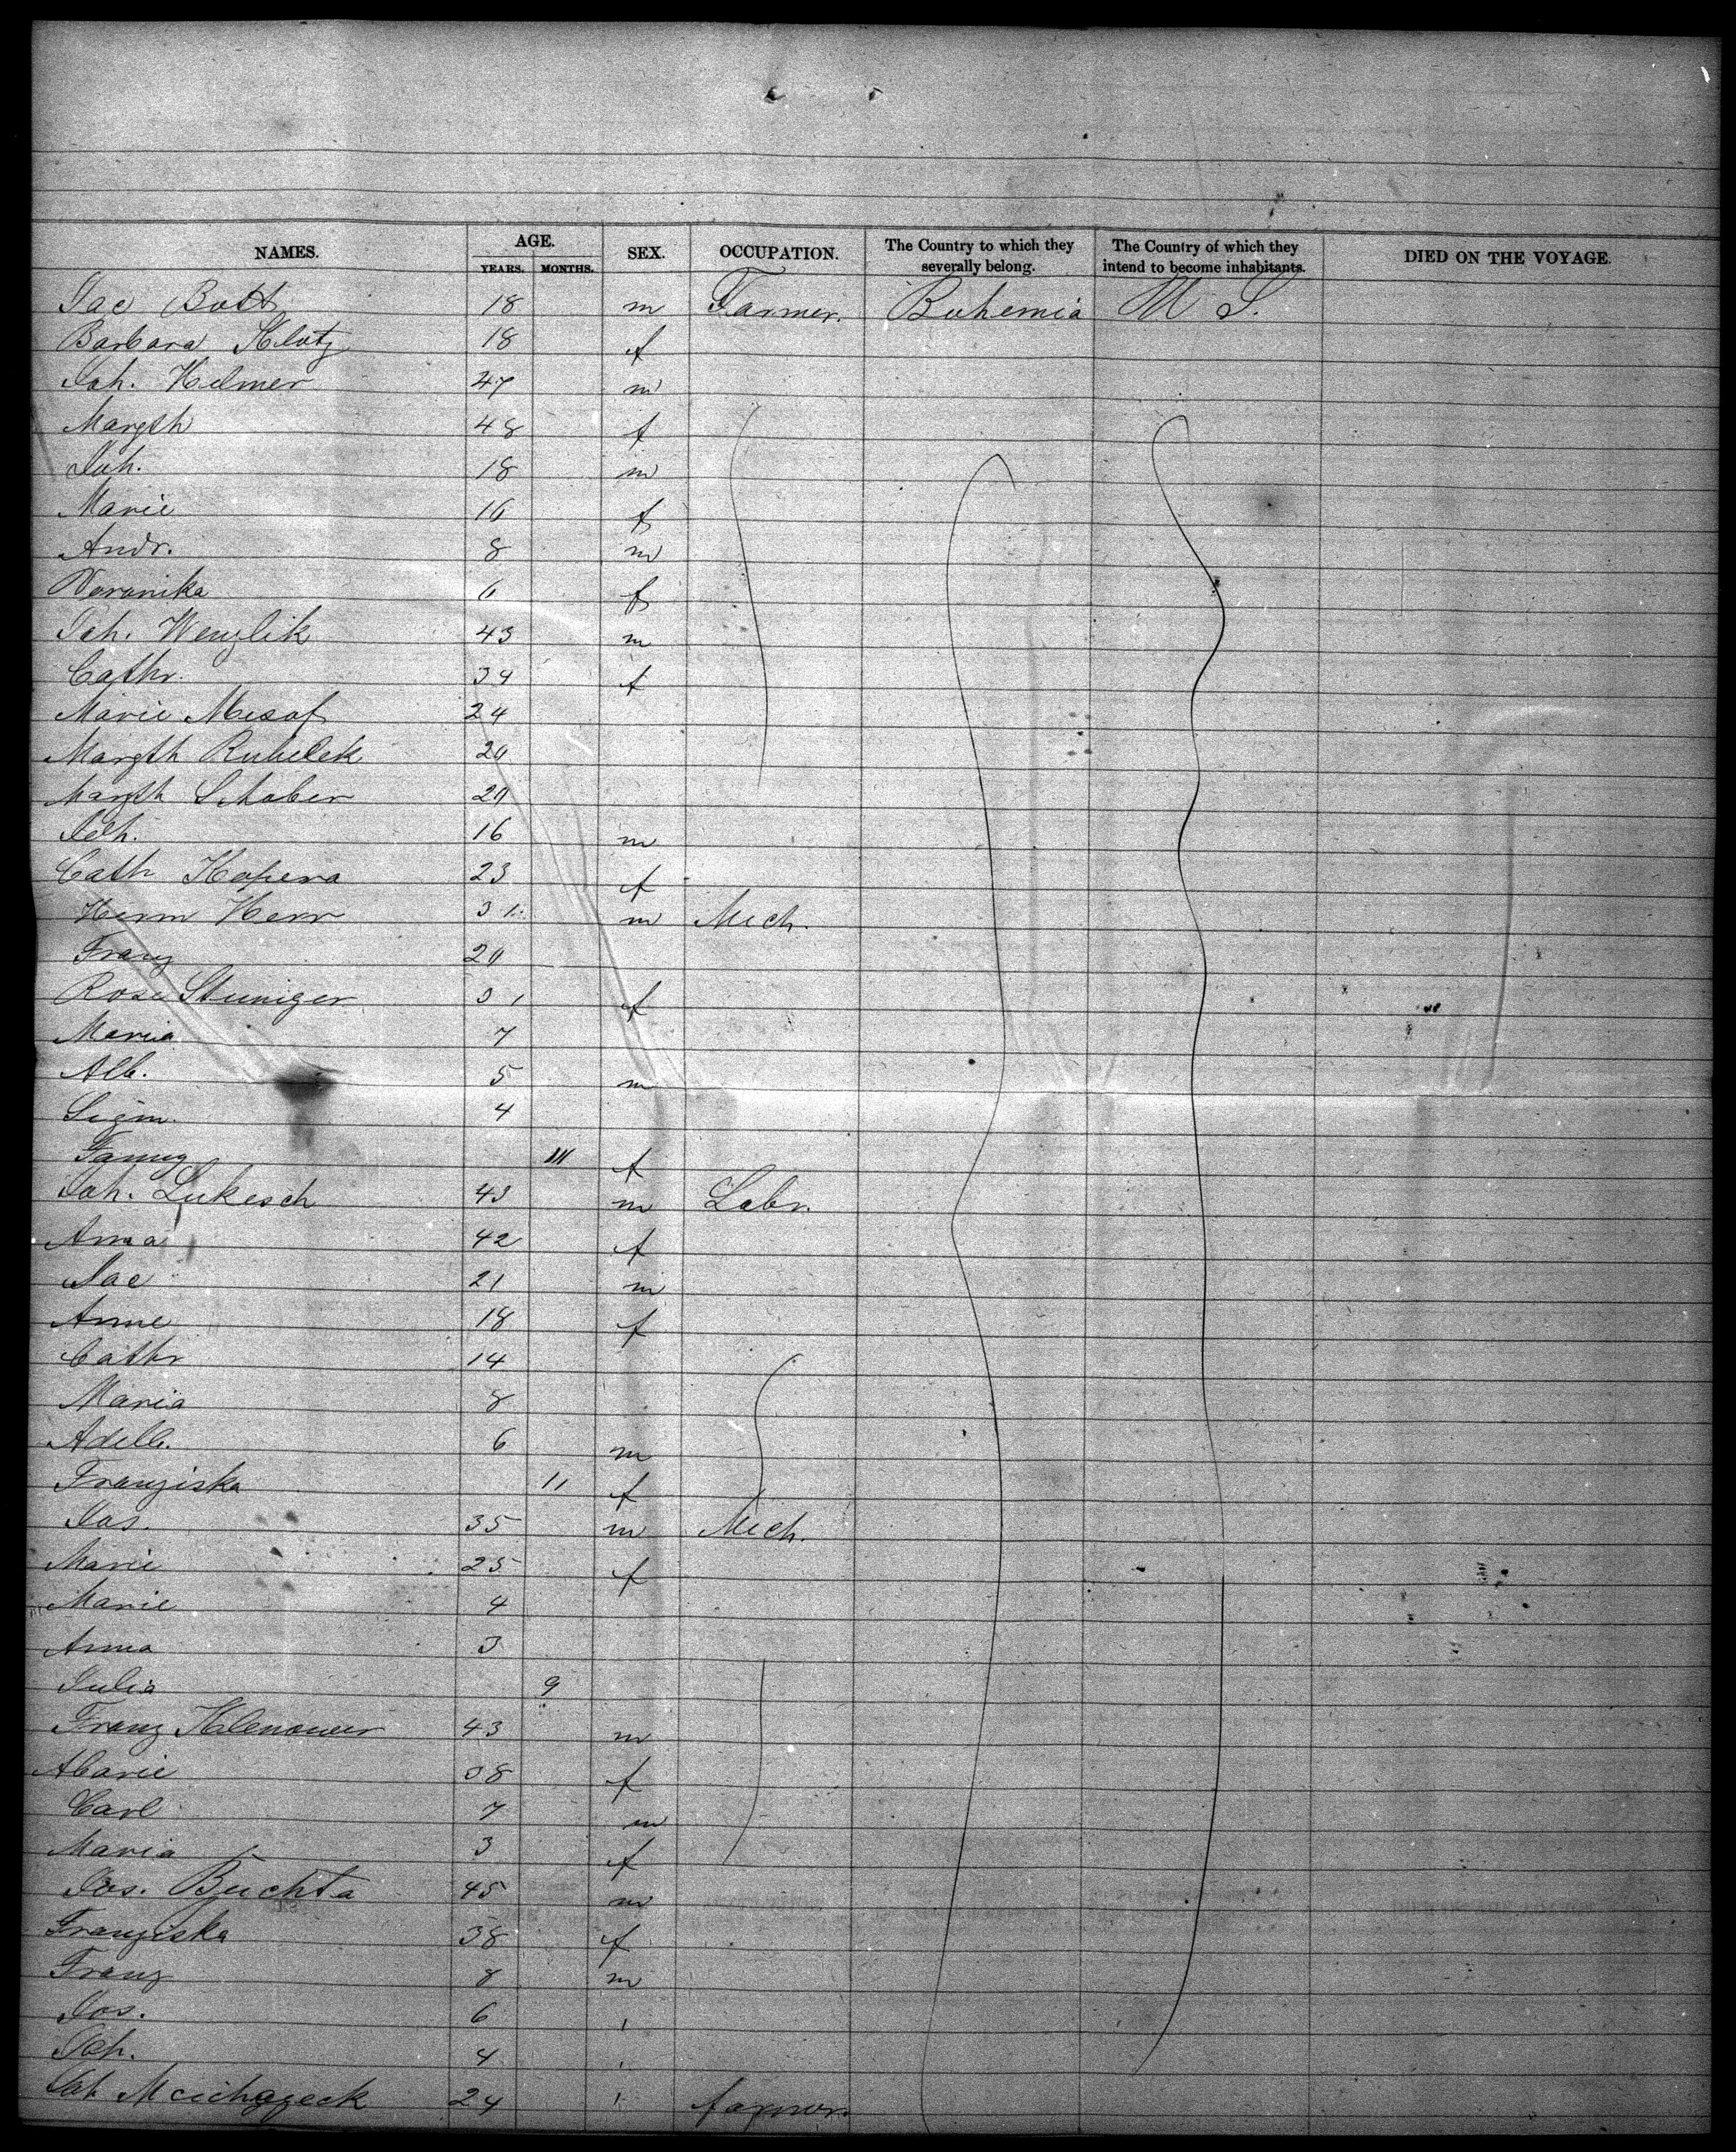 NAMES. AGE. YEARS. MONTHS. SEX. OCCUPATION. The Country to which they severally belong. The Country of which they intend to become inhabitants. DIED ON THE VOYAGE.
Jac Bott 18 m Farmer. Bohemia U S.
Barbara Klotz 18 f
Joh. Helmer 47 m
Margth 48 f
Joh. 18 m
Marie 16 f
Andr. 8 m
Veronika 6 f
Joh. Wenzlik 43 m
Cathr. 34 f
Marie 24
Margth 20
Margth Schober 20
Joh. 16 m
Cath Kopera 23 f
Herm Herr 31 m Mech.
Franz 20
Rosi 31 f
Maria 7
Alb. 5 m
Sigm. 4
Fanny f
Joh. Lukesch 43 m Labr.
Anna 42 f
Jac 21 m
Anne 18 f
Cathr 14
Maria 8
Adelb. 6 m
Franziska 11 f
Jos. 35 m Mech.
Marie 25 f
Marie 4
Anna 3
Julia 9
Franz 43 m
Marie 38 f
Carl 7 m
Maria 3 f
Jos. Buchta 45 m
Franziska 38 f
Franz 8 m
Jos. 6 "
Joh. 4 "
24 " farmer.